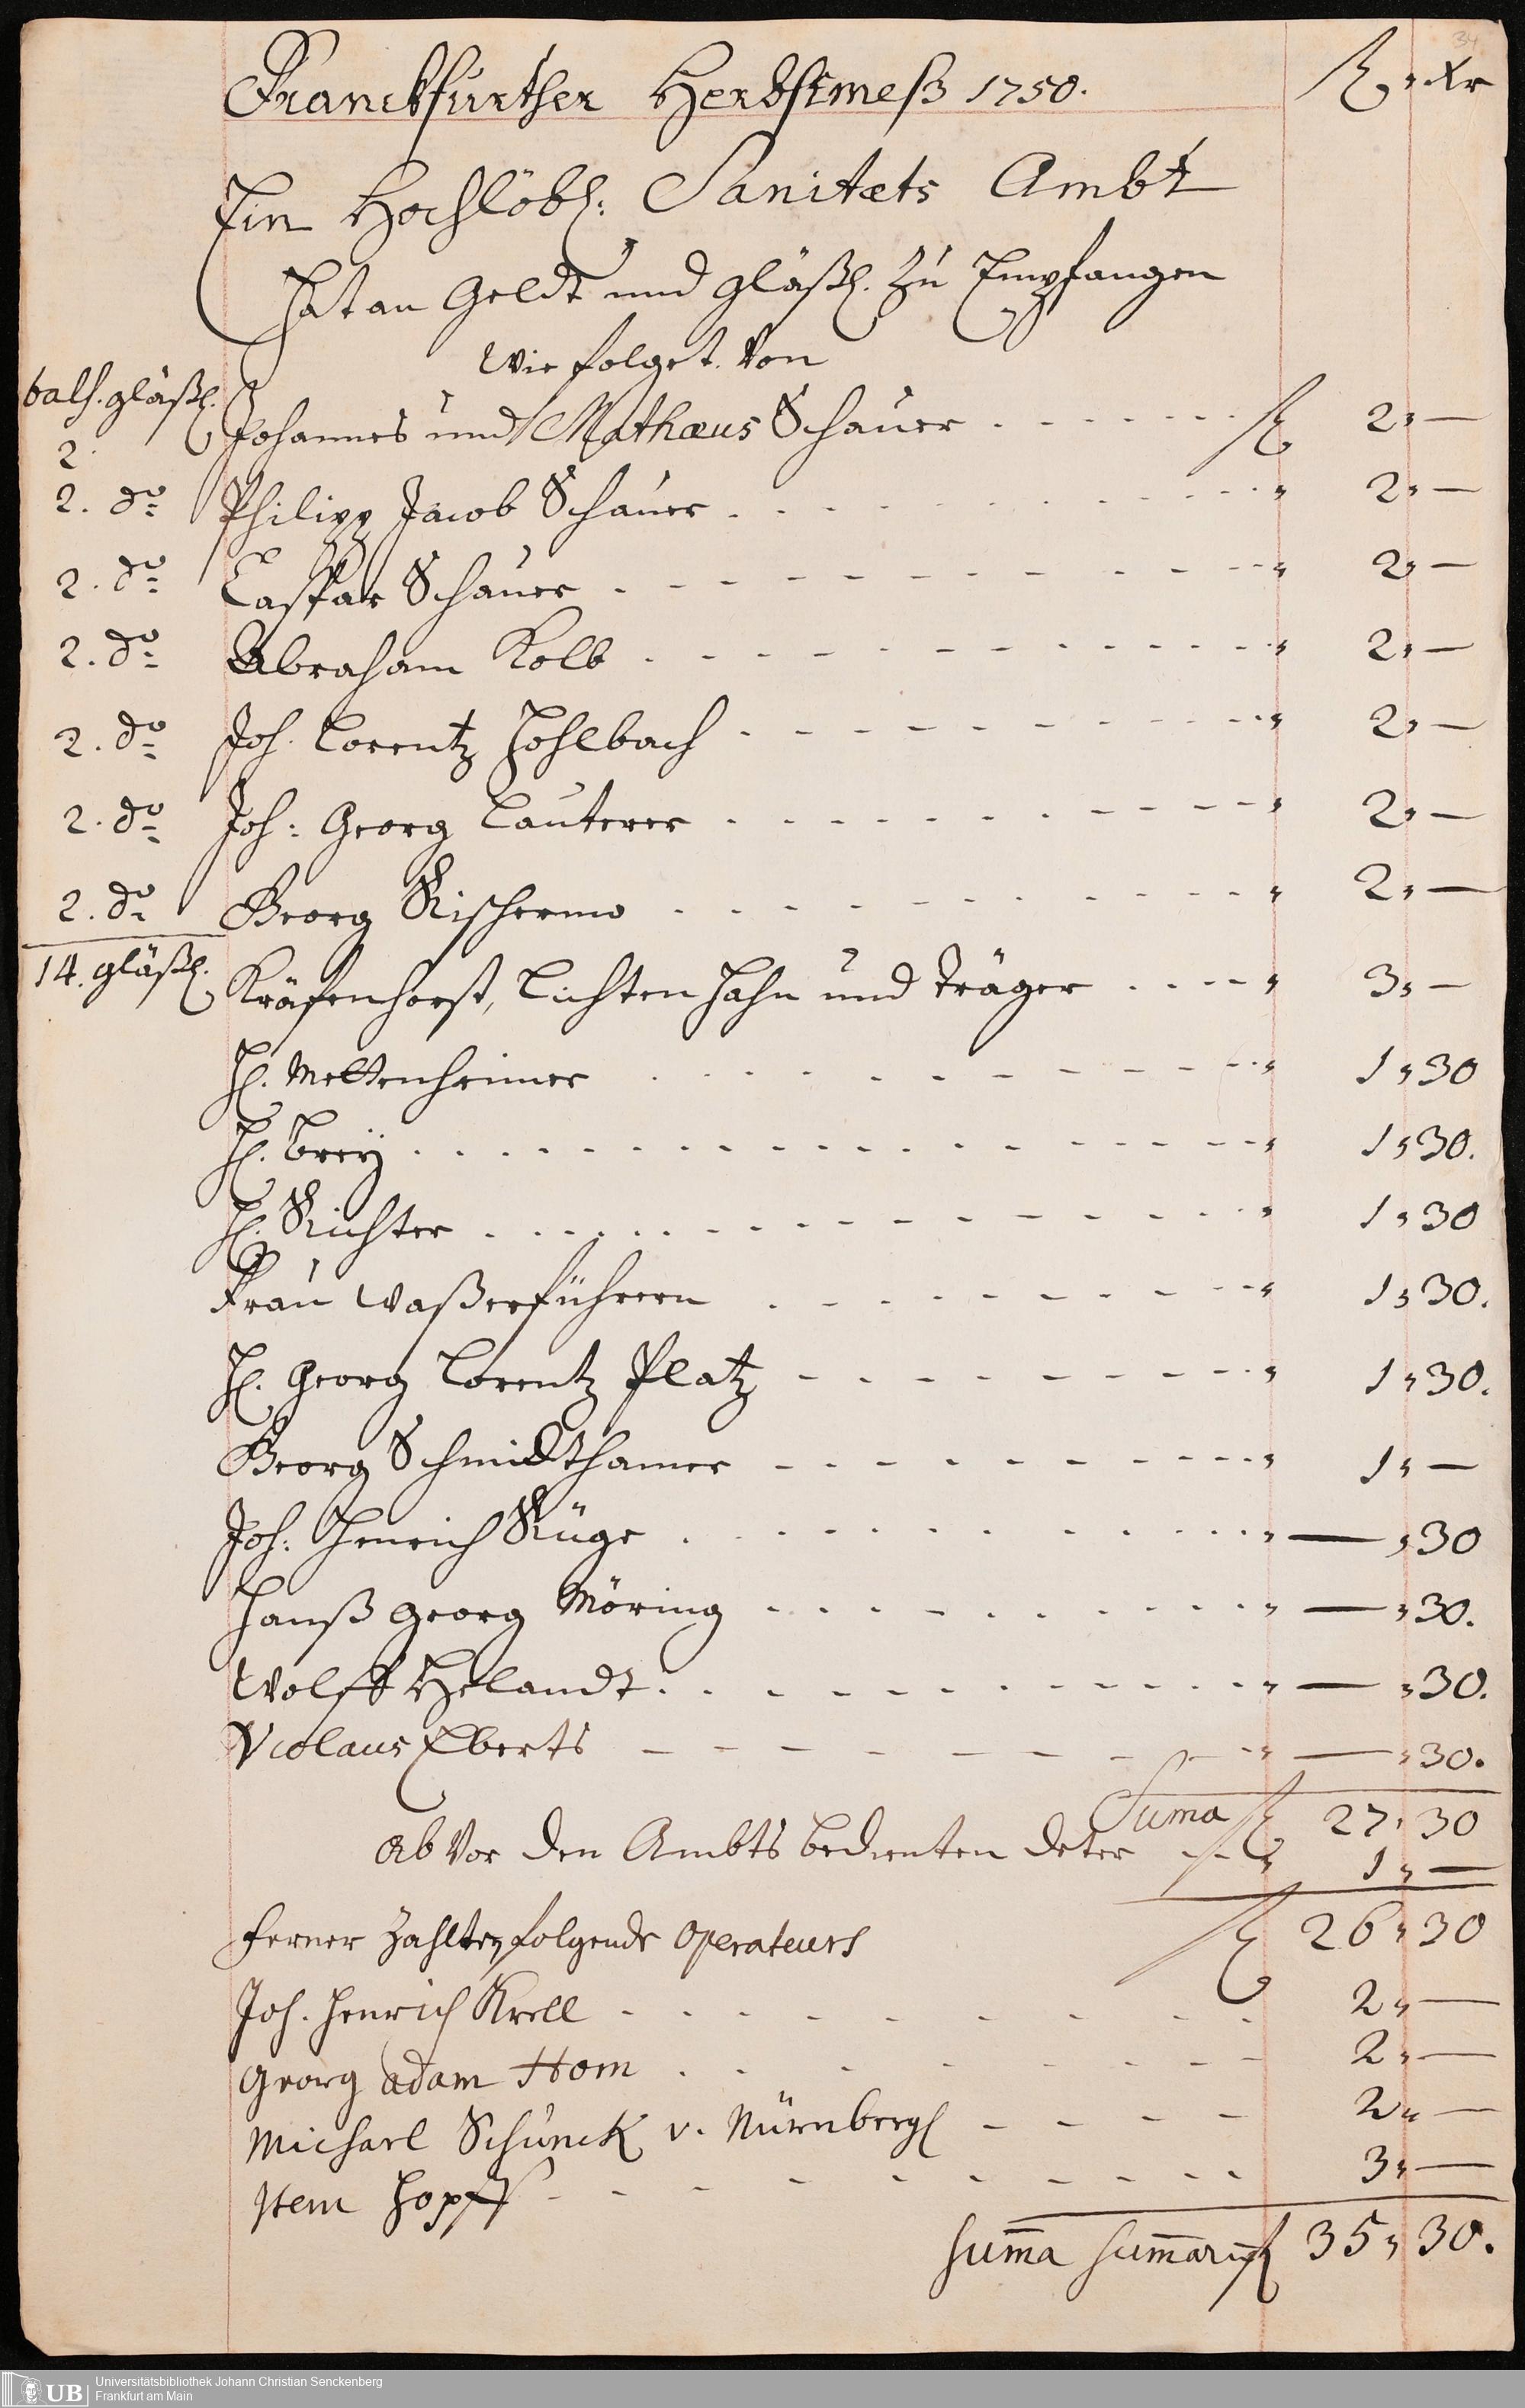 34
Franckfurther Herbstmeß 1750. f. Xr
Ein Hochlöbl: Sanitæts Ambt
Hat an Geldt und gläßl. zu Empfangen
Wie folget. Von
bals. gläßl.
2. Johannes und Mathæus Schauer . . . . . . f 2 " —
2. do Philipp Jacob Schauer . . . . . . " 2 " —
2. do Caspar Schauer . . . . . . " 2 " —
2. do Abraham Kolb . . . . . . " 2 " —
2. do Joh. Lorentz Hohlbach . . . . . . " 2 " —
2. do Joh: Georg Lauterer . . . . . . " 2 " —
2. do Georg Rischermo . . . . . . " 2 " —
14. gläßl. Kräfenhorst, Lichten Hahn und Träger . . . . " 3 " —
H. Mettenheimer . . . . . . " 1 " 30
H. Brey . . . . . . " 1 " 30.
H. Richter . . . . . . " 1 " 30
Frau Waßerführern . . . . . . " 1 " 30.
H. Georg Lorentz Platz . . . . . . " 1 " 30.
Georg Schmidthamer . . . . . . " 1 " —
Joh: Henrich Rüge . . . . . . " — " 30
Hanß Georg Möring . . . . . . " — " 30.
Wolff Helandt . . . . . . " — " 30.
Nicolaus Eberts . . . . . . " — " 30.
Suma f 27 " 30
Ab Vor den Ambts bedienten Deter . . . " 1 " —
f 26 " 30
Ferner Zahlten folgende Operateurs
Joh. Henrich Krell . . . . . . 2 " —
Georg Adam Hom . . . . . . 2 " —
Michael Schunck v. Nürnberg . . . . 2 " —
Item Hopff . . . . . . 3 " —
Suma Sumarum f 35 " 30.
UB Universitätsbibliothek Johann Christian Senckenberg
Frankfurt am Main